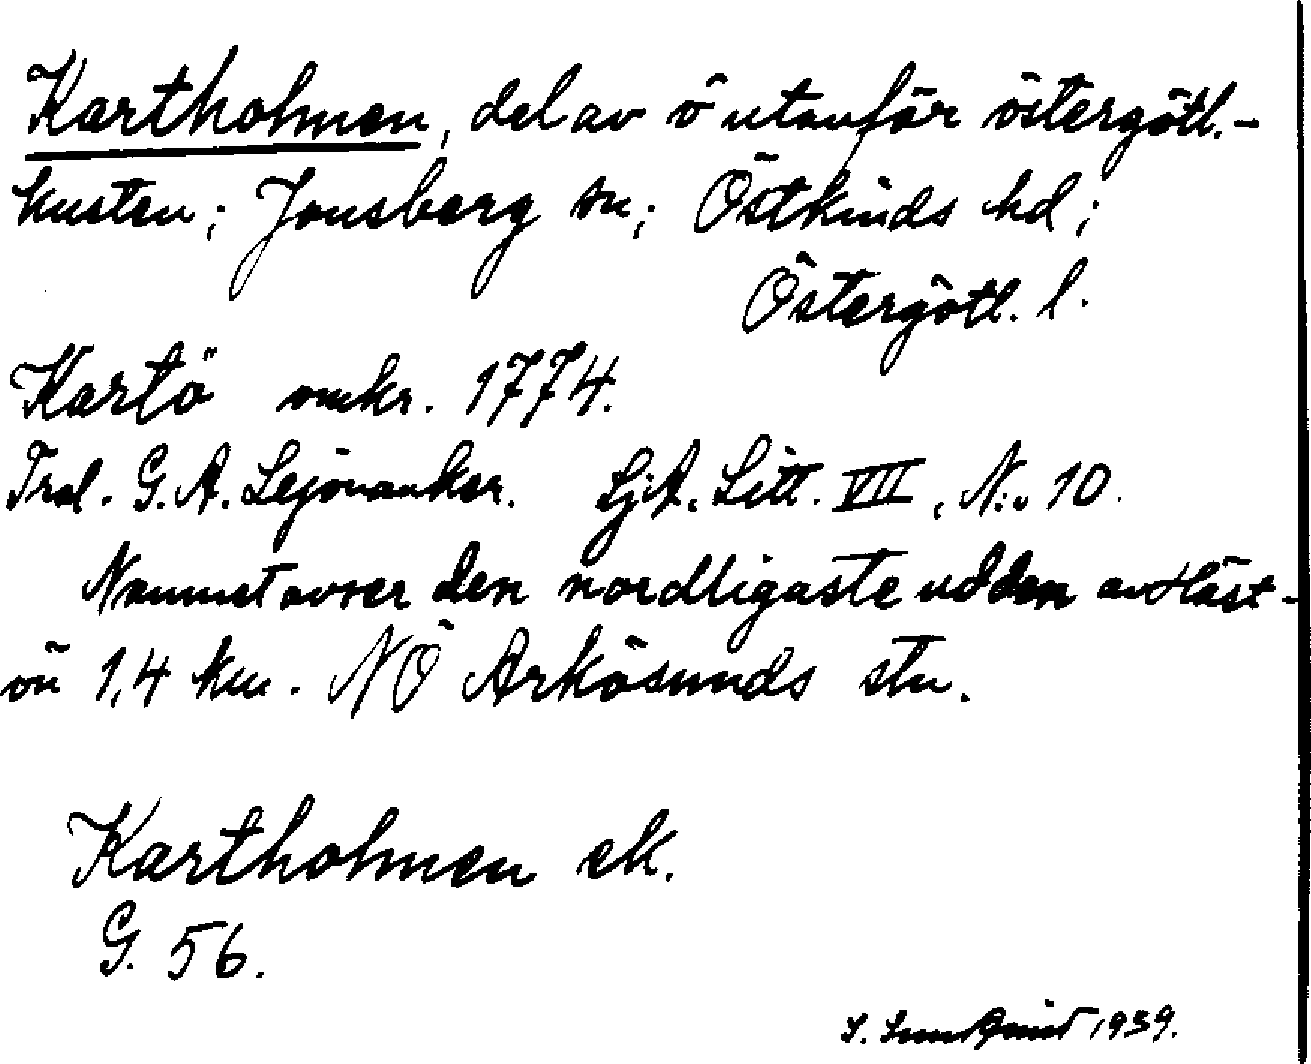 Kartholmen, del av ö utanför östergötl.-
kusten; Jonsberg sn; Östkinds hd;
Östergötl. l.
Kartö omkr. 1774.
G. A. Lejonanker. Sj.A. Litt. VII, N:o 10.
Namnet avser den nordligaste udden av Häst-
ön 1,4 km. NÖ Arkösunds stn.
Kartholmen ek.
G. 56.
1939.